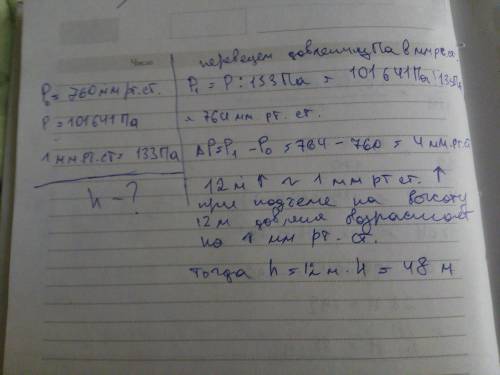 Число
P₀ = 760 мм рт. ст.
P = 101641 Па
1 мм рт. ст. = 133 Па
h - ?
переведем давление из Па в мм рт. ст.
P₁ = P : 133 Па = 101641 Па : 133 Па
= 764 мм рт. ст.
ΔP = P₁ - P₀ = 764 - 760 = 4 мм. рт. ст
12 м ↑ ~ 1 мм рт ст. ↑
при подъеме на высоту
12 м возрастает
на 1 мм рт. ст.
тогда h = 12 м · 4 = 48 м